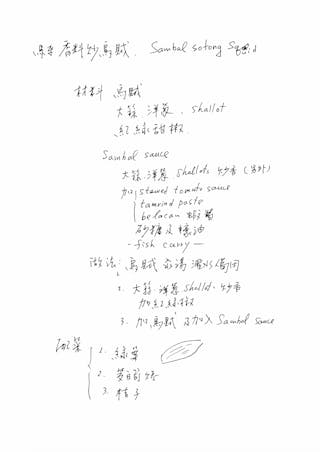 香料炒烏賊. Sambal sotong Squid
材料 烏賊
大蒜.洋蔥.shallot
紅綠甜椒.
Sambal sauce
大蒜.洋蔥 shallots 炒香
加 stewed tomato sauce
tamrind paste
belacan 蝦醬
砂糖及 油
- fish curry -
做法: 烏賊
2. 大蒜.洋蔥 shallot. 炒香
加紅綠椒
3. 加烏賊及加入 Sambal sauce
配菜
1. 綠葉
2.
3. 桔子